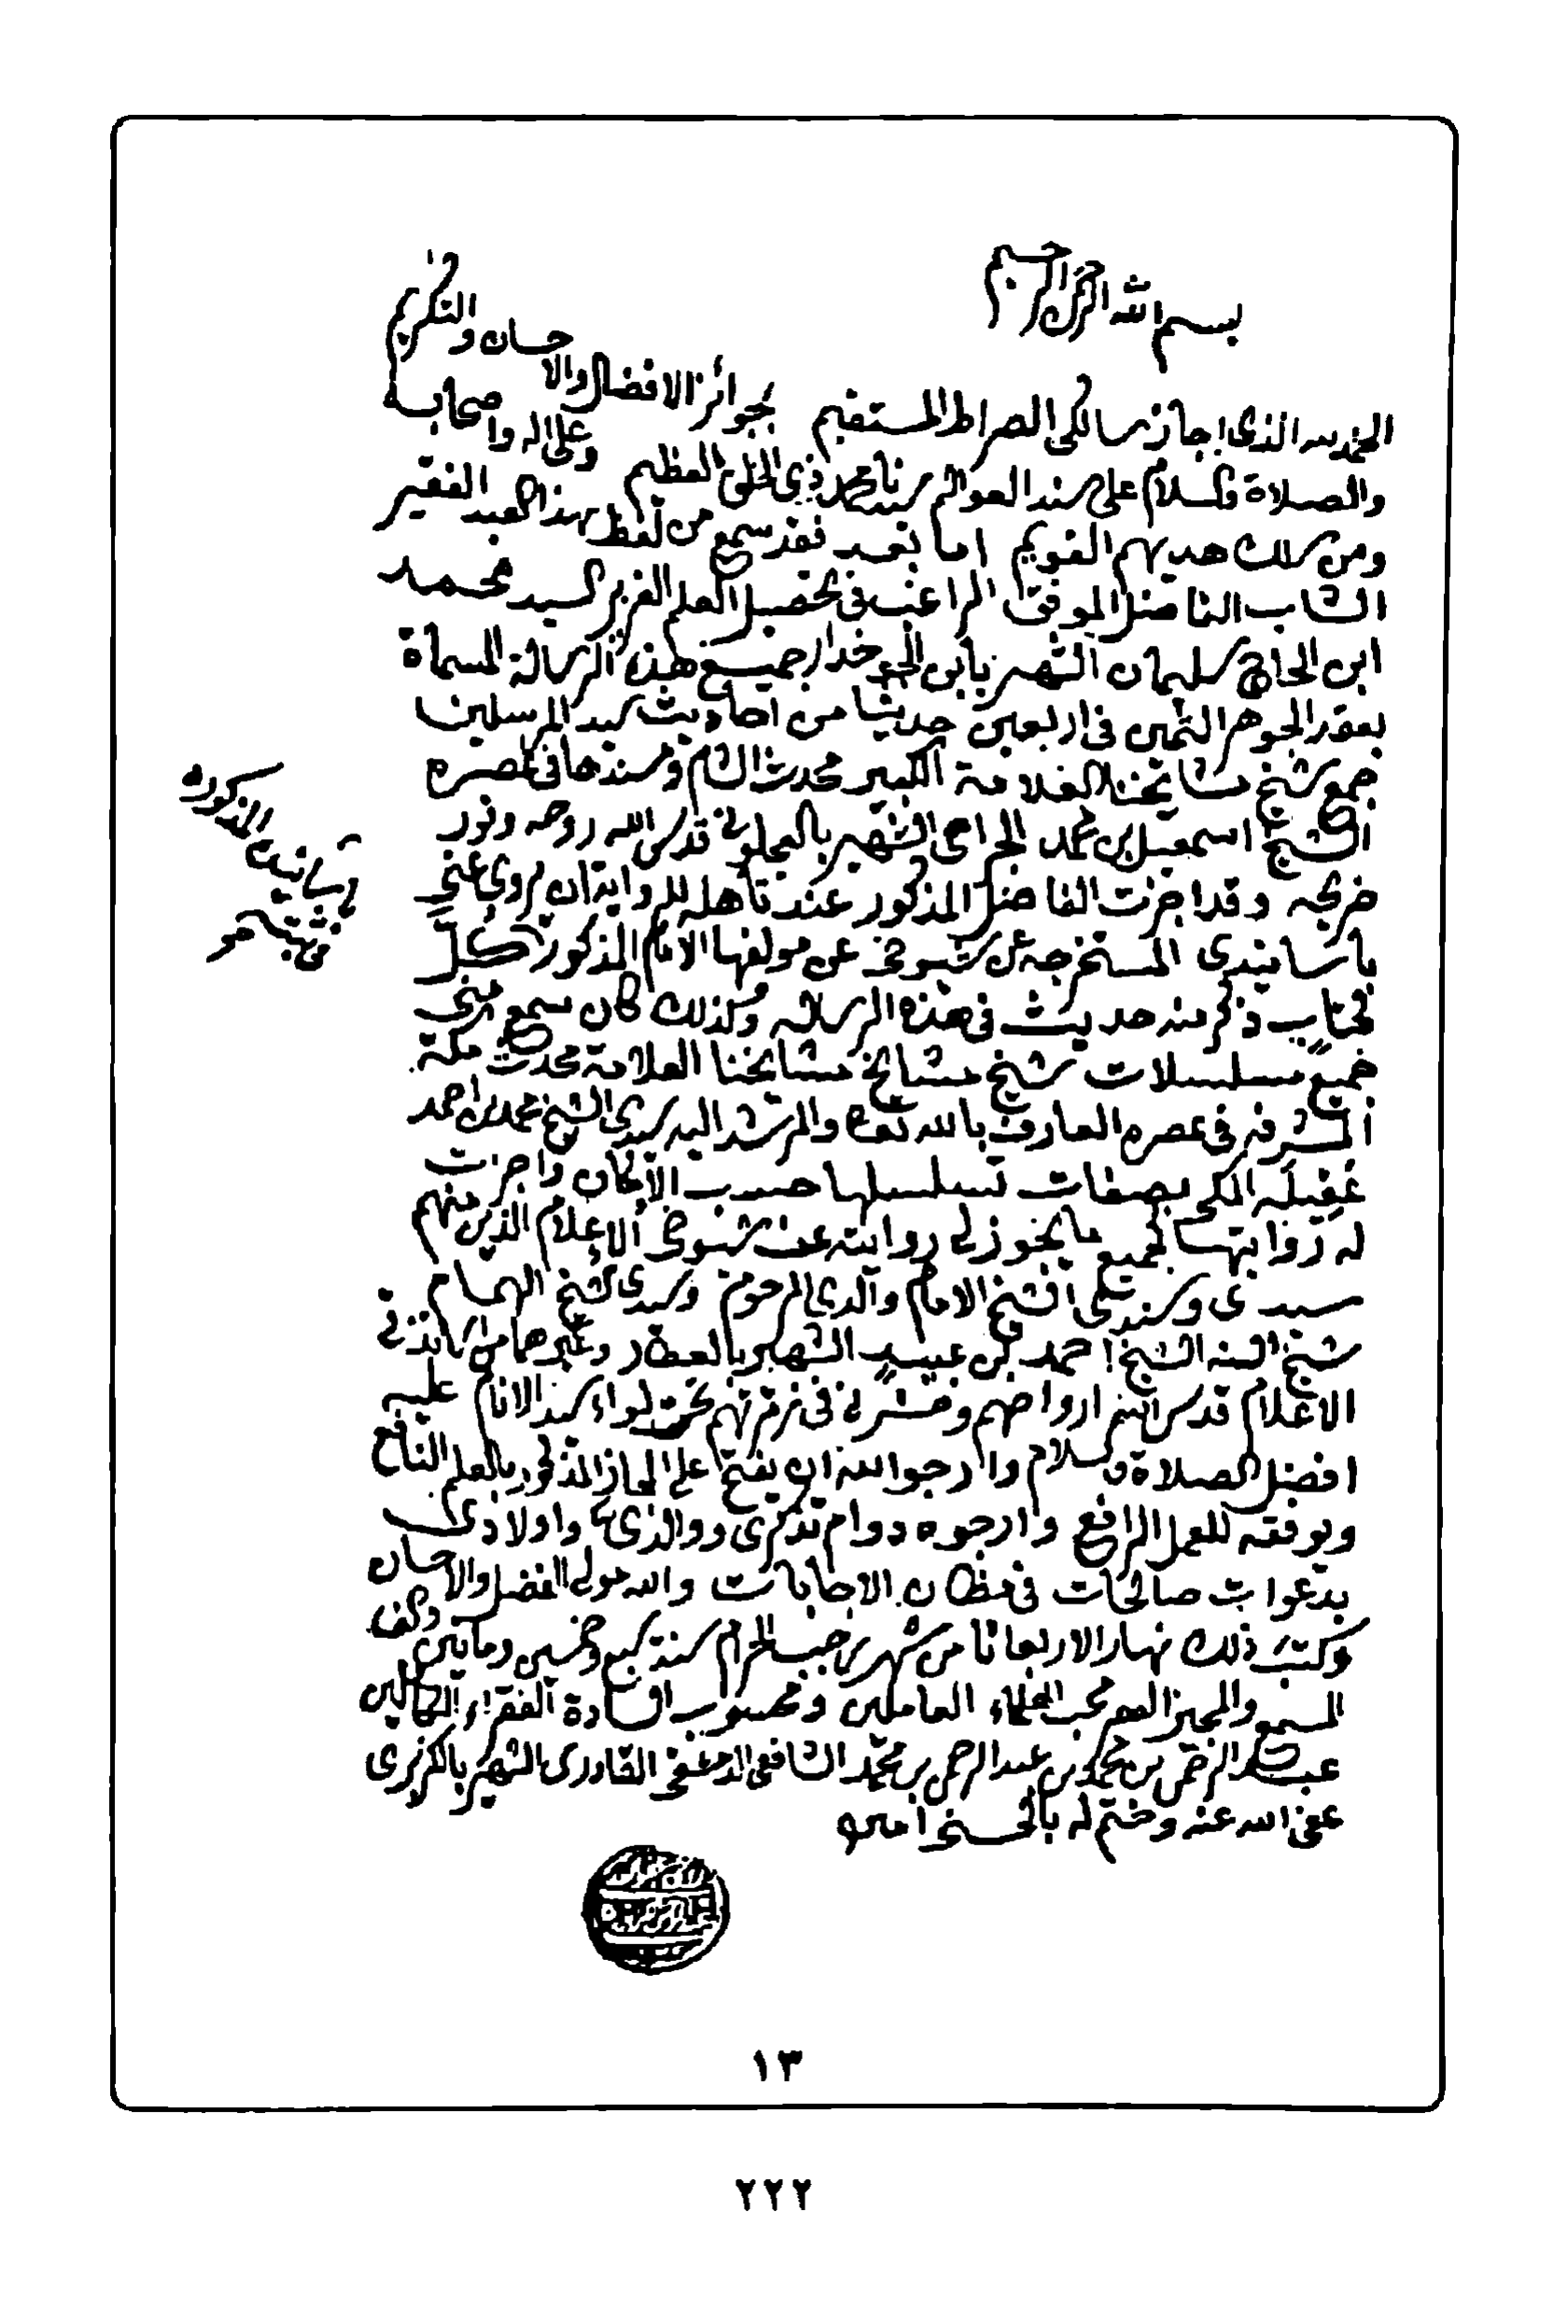 بسم الله الرحمن الرحيم
الحمد لله الذي اجاز سالكي الصراط المستقيم بجوائز الافضال والاحسان والتكريم
والصلاة والسلام على سند العوالم سيدنا محمد ذي الخلق العظيم وعلى اله واصحابه
ومن سلك هديهم القويم اما بعد فقد سمع من لفظ هذا العبد الفقير
الشاب الفاضل الموفق الراغب في تحصيل العلم العزيز السيد محمد
ابن الحاج سليمان الشهير بابن الجوخدار جميع هذه الرسالة المسماة
بعقد الجوهر الثمين في اربعين حديثا من احاديث سيد المرسلين
جمع شيخ مشايخنا العلامة الكبير محدث الشام ومسندها في عصره
الشيخ اسمعيل بن محمد الجراحي الشهير بالعجلوني قدس الله روحه ونور
ضريحه وقد اجزت الفاضل المذكور عند تاهله للرواية ان يروي عني
باسانيدي المستخرجة عن شيوخي عن مولفها الامام المذكور كل
كتاب ذكر منه حديث في هذه الرسالة وكذلك كان سمع مني
جميع مسلسلات شيخ مشايخ مشايخنا العلامة محدث مكة
المشرفة في عصره العارف بالله تعالى والمرشد اليه سيدي الشيخ محمد بن احمد
عقيله المكي بصفات تسلسلها حسب الامكان واجزت
له روايتها لجميع ما يجوز لي روايته عن شيوخي الاعلام الذين منهم
سيدي وسندي الشيخ الامام والدي المرحوم وسيدي الشيخ الهمام
شيخ السنة الشيخ احمد بن عبيد الشهير بالعطار وغيرهما من اساتذتي
الاعلام قدس الله ارواحهم وحشرني في زمرتهم تحت لواء سيد الانام عليه
افضل الصلاة والسلام وارجو الله ان يفتح على المجاز المذكور بالعلم النافع
ويوفقه للعمل الرافع وارجوه دوام تذكري ووالدي واولادي
بدعوات صالحات في مظان الاجابات والله مولي الفضل والاحسان
وكتبت ذلك نهار الاربعا من شهر رجب الحرام سنة وخمسين ومأتين والف
المسمع والمجيز محب العلماء العاملين الفقراء
عبد الرحمن بن محمد بن عبد الرحمن بن محمد الشافعي الدمشقي القادري الشهير بالكزبري
عفى الله عنه وختم له بالحسنى امين
باسانيد
المذكورة
١٣
٢٢٢